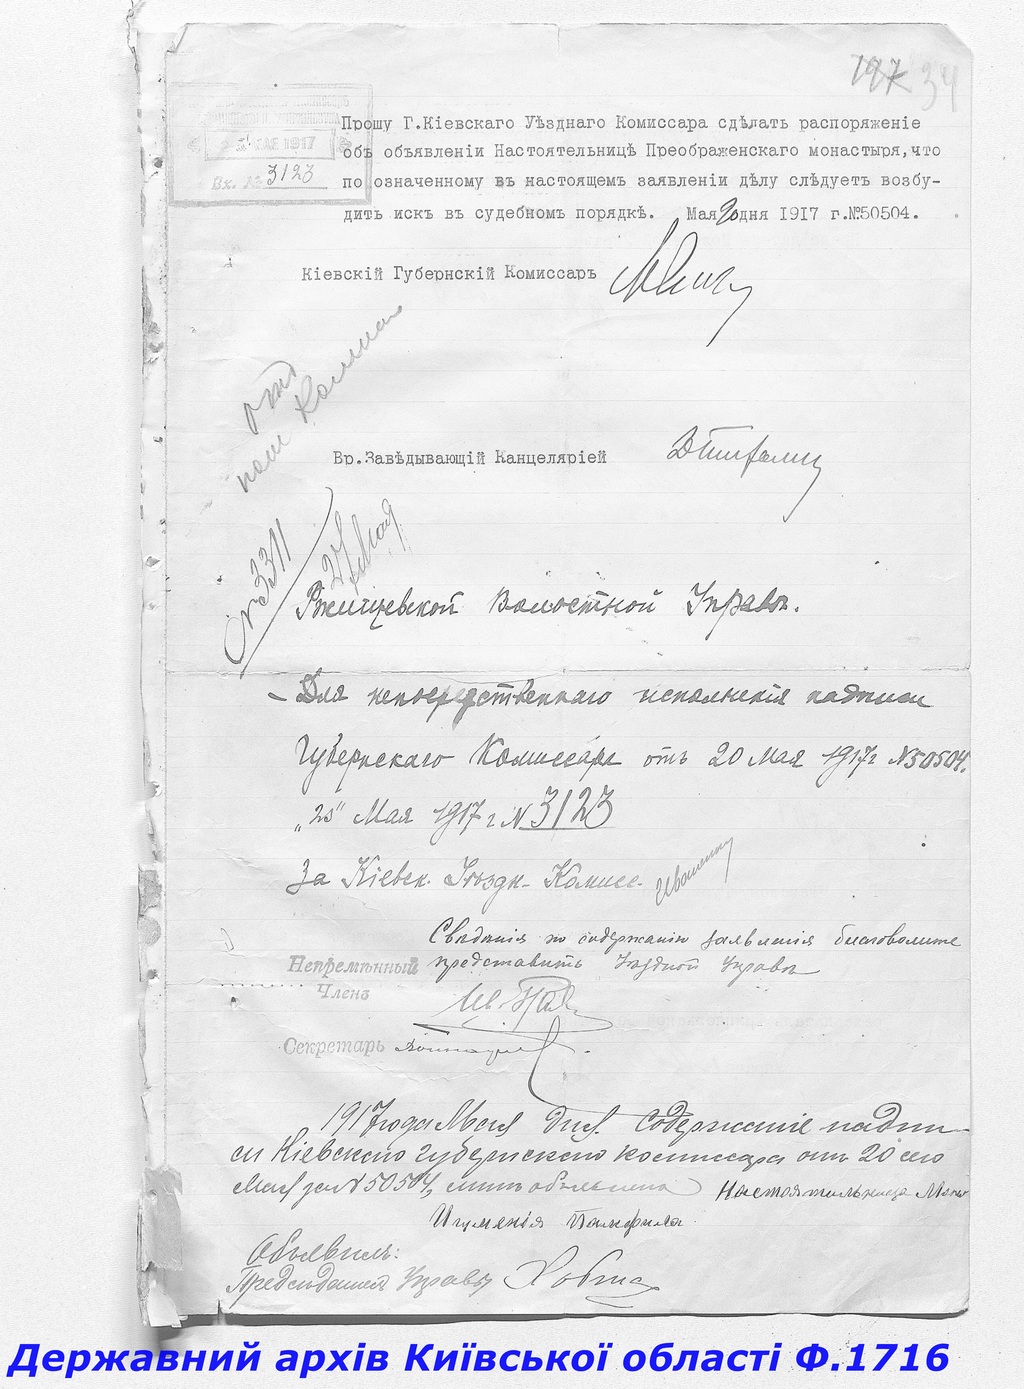 197 34
МАЕ 1917
Вх. № 3123
Прошу Г.Кіевскаго Уѣзднаго Комиссара сдѣлать распоряженіе
объ объявленіи Настоятельницѣ Преображенскаго монастыря, что
по означенному въ настоящемъ заявленіи дѣлу слѣдуетъ возбу-
дить искъ въ судебномъ порядкѣ. Мая 20 дня 1917 г. №50504.
Кіевскій Губернскій Комиссаръ
Вр.Завѣдывающій Канцеляріей
№3311
27 Мая
Ржищевской Волостной Управѣ.
- Для непосредственнаго исполненія надписи
Губернскаго Комиссара отъ 20 Мая 1917 г N50504.
Мая 1917 г. N 3123
За Кіевск. Уѣздн. Комисс.
Свѣдѣнія по содержанію заявленія благоволите
представить Уѣздной Управѣ
Непремѣнный
Членъ
Секретарь
1917 года Мая дня. Содержаніе надпи-
си Кіевскаго Губернскаго комиссара отъ 20 сего
Мая за N 50504, мнѣ объявлено Настоятельница Мон.
Игуменія Памфила.
Объявилъ:
Предсѣдатель Управы
Державний архів Київської області Ф.1716